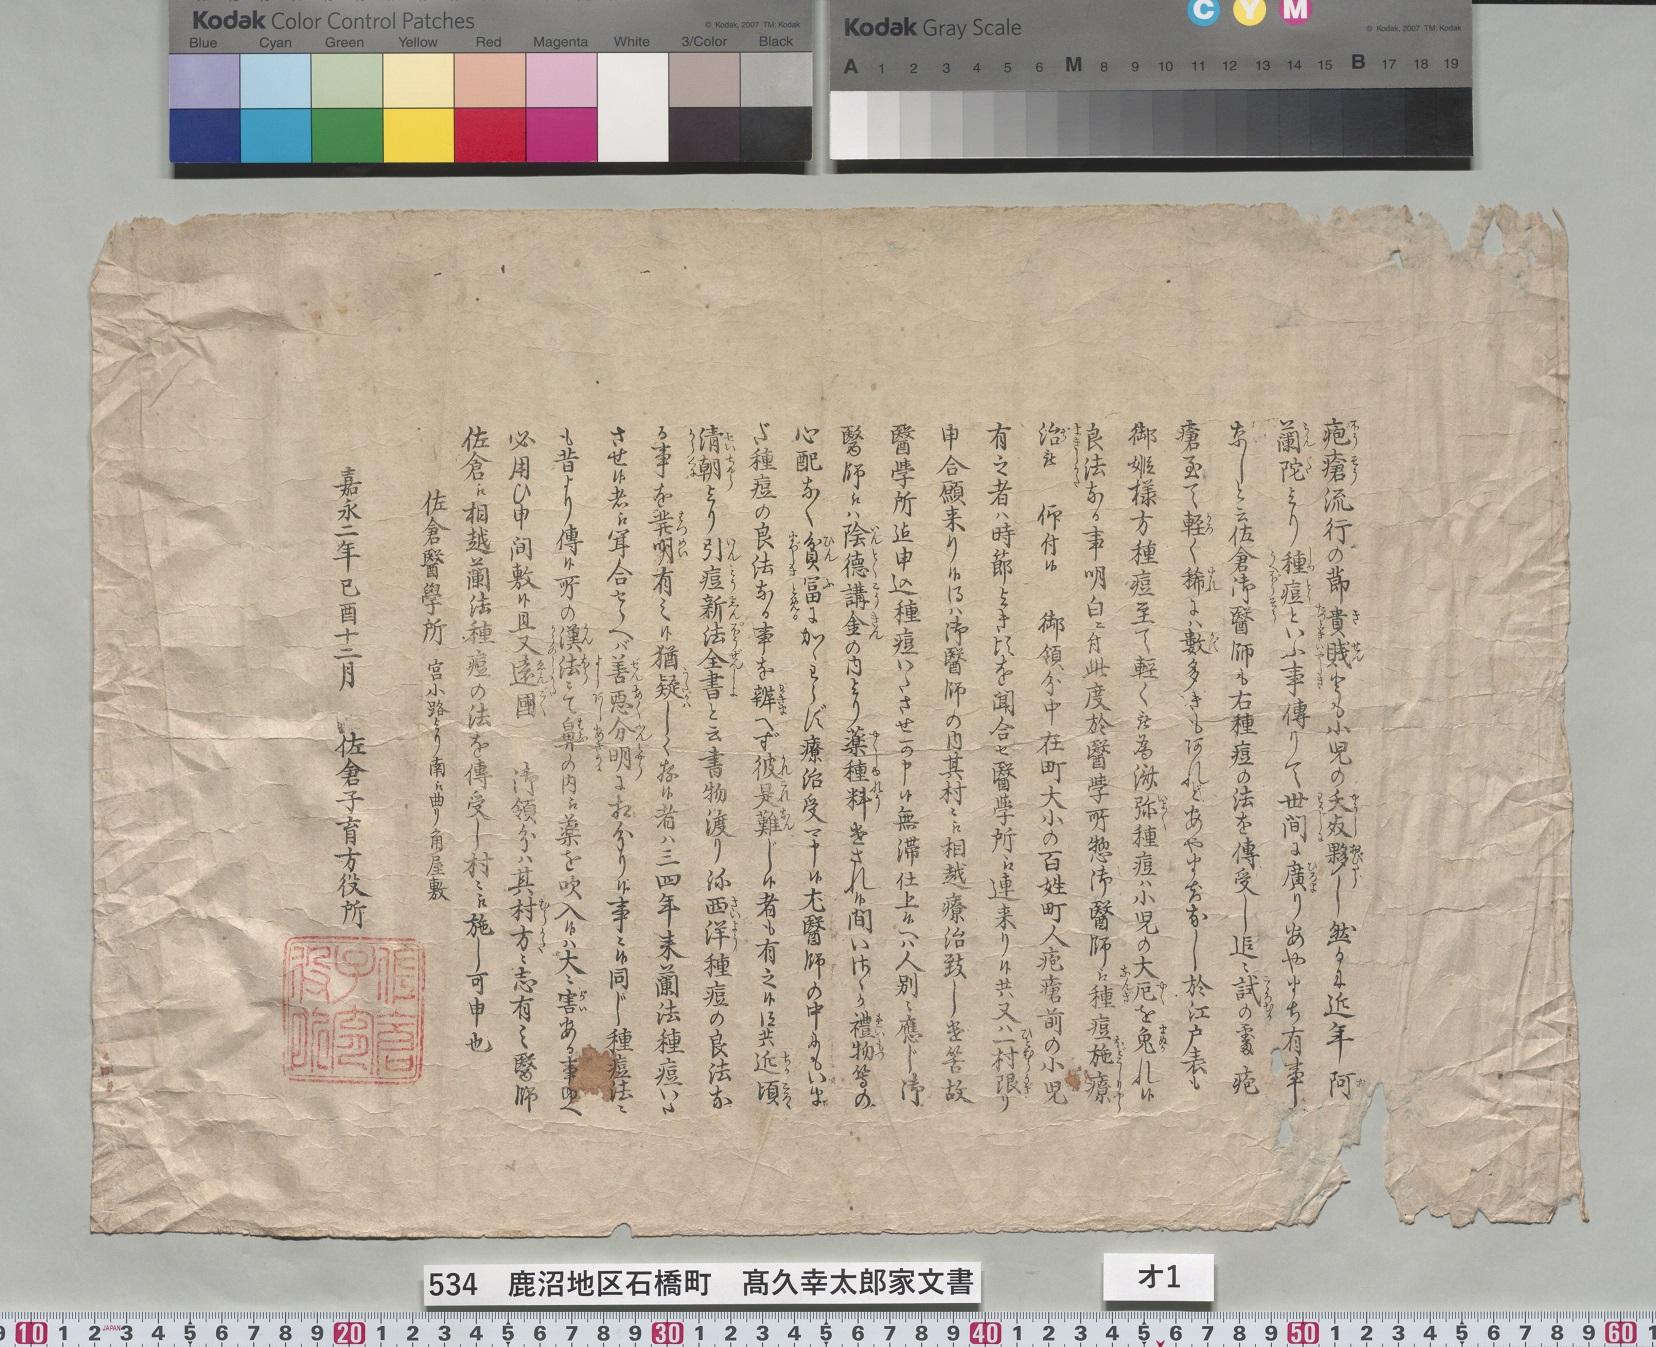 Kodak Color Control Patches
© Kodak, 2007 TM: Kodak
Blue Cyan Green Yellow Red Magenta White 3/Color Black
Kodak Gray Scale
C Y M
© Kodak, 2007 TM: Kodak
A 1 2 3 4 5 6 M 8 9 10 11 12 13 14 15 B 17 18 19
疱瘡流行の節貴賎とも小児の夭殀夥し然るに近年阿
蘭陀より種痘といふ事傳りて世間に廣りあやまち有事
なしと云佐倉御醫師も右種痘の法を傳受し追々試の處疱
瘡至て軽く稀には數多きも何れどあやまちなし於江戸表も
御姫様方種痘至て軽く被為濟弥種痘ハ小児の大厄を免れ候
良法なる事明白ニ付此度於醫學所惣御醫師江種痘施療
治被 仰付候 御領分中在町大小の百姓町人疱瘡前の小児
有之者ハ時節よき頃を聞合セ醫學所江連来り候共又ハ一村限り
申合願来り候得ハ御醫師の内其村々江相越療治致し候筈故
醫學所迄申込種痘いたさせ可申候無滞仕上候ヘハ人別ニ應じ御
醫師江ハ陰徳講金の内より薬種料被下候間いささか禮物等の
心配なく貧冨にかゝわらず療治受可申候尤醫師の中にもいまだ
種痘の良法なる事を辨へず彼是難じ候者も有之候得共近頃
清朝より引痘新法全書と云書物渡り弥西洋種痘の良法な
る事を発明有之候猶疑しく存候者ハ三四年来蘭法種痘いた
させ候者江寄合せ候ヘバ善悪分明に相分り候事ニ候同じ種痘法ニ
も昔より傳候所の漢法にて鼻の内江薬を吹入候ハ大ニ害ある事ゆへ
必用ひ申間敷候且又遠國 御領分ハ其村方ニ志有之醫師
佐倉江相越蘭法種痘の法を傳受し村々江施し可申也
佐倉醫學所 宮小路より南江曲り角屋敷
嘉永二年己酉十二月 佐倉子育方役所
534 鹿沼地区石橋町 髙久幸太郎家文書
オ1
9 10 1 2 3 4 5 6 7 8 9 20 1 2 3 4 5 6 7 8 9 30 1 2 3 4 5 6 7 8 9 40 1 2 3 4 5 6 7 8 9 50 1 2 3 4 5 6 7 8 9 60